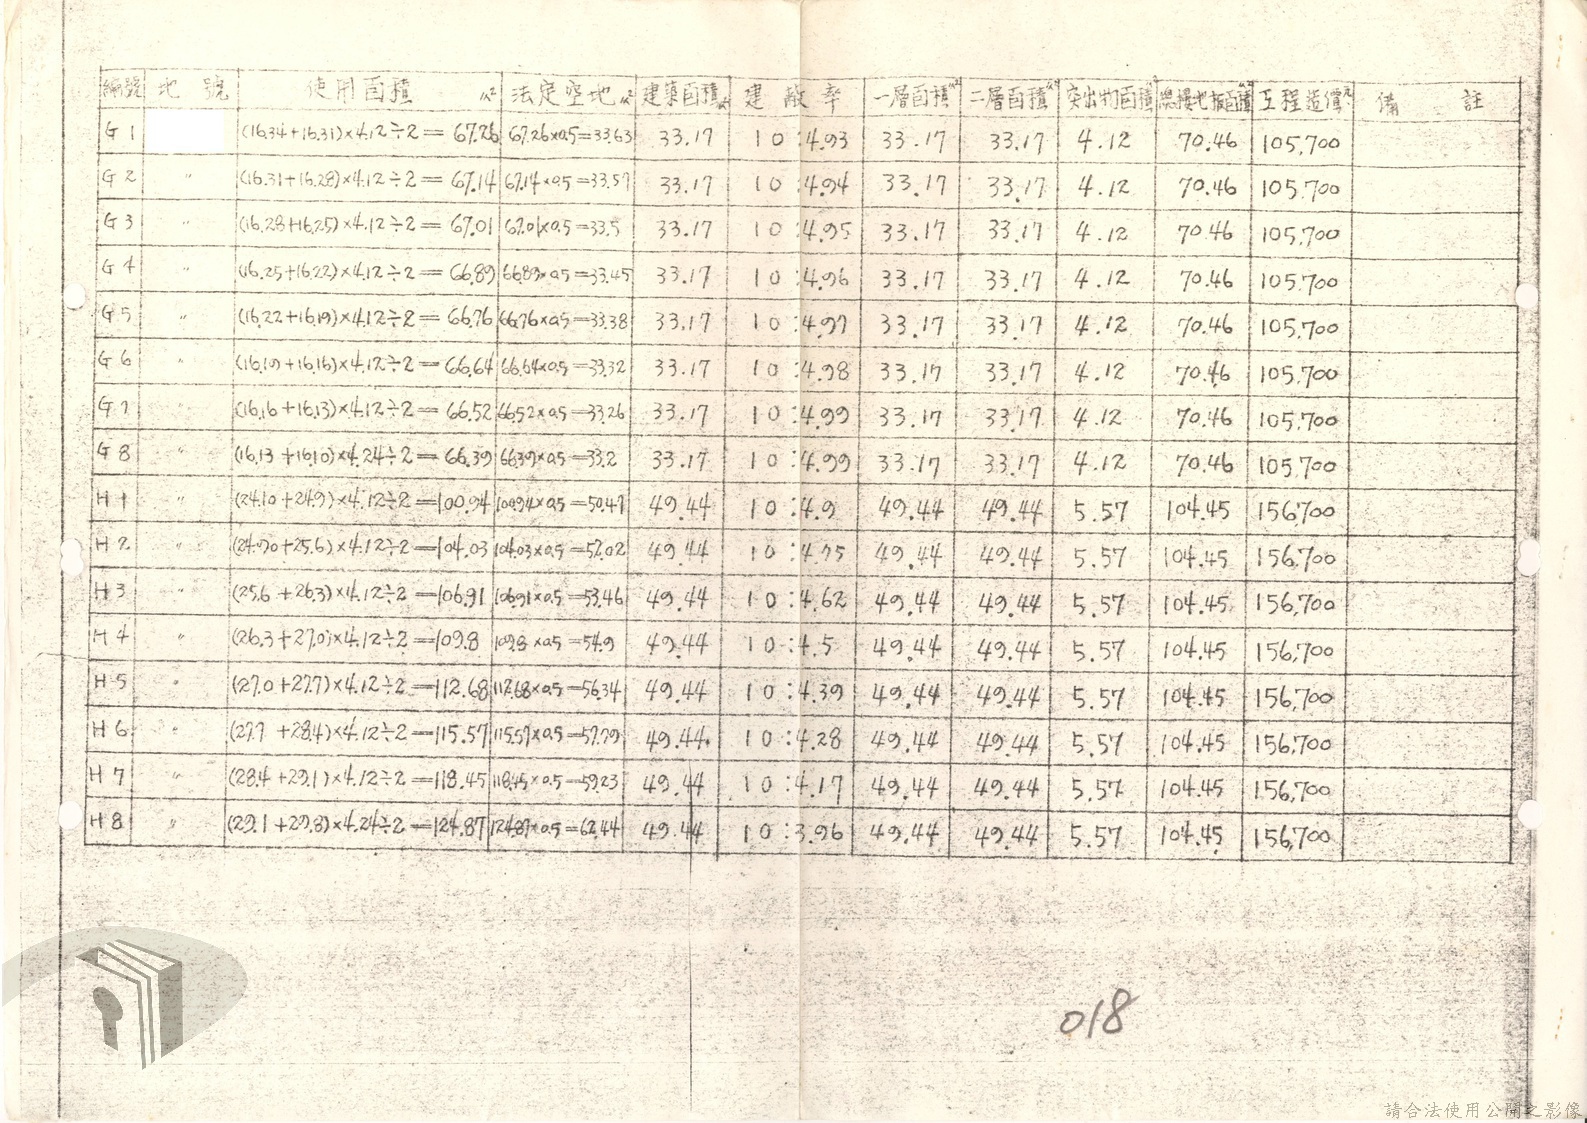 編號 地號 使用面積 M² 法定空地 M² 建築面積 M² 建敝率 一層面積 M² 二層面積 M² 突出物面積 M² 總樓地板面積 M² 工程造價 元 備註
G1 (16.34+16.31)×4.12÷2= 67.26 67.26×0.5=33.63 33.17 10:4.93 33.17 33.17 4.12 70.46 105,700
G2 〃 (16.31+16.28)×4.12÷2= 67.14 67.14×0.5=33.57 33.17 10:4.94 33.17 33.17 4.12 70.46 105,700
G3 〃 (16.28+16.25)×4.12÷2= 67.01 67.01×0.5=33.5 33.17 10:4.95 33.17 33.17 4.12 70.46 105,700
G4 〃 (16.25+16.22)×4.12÷2= 66.89 66.89×0.5=33.45 33.17 10:4.96 33.17 33.17 4.12 70.46 105,700
G5 〃 (16.22+16.19)×4.12÷2= 66.76 66.76×0.5=33.38 33.17 10:4.97 33.17 33.17 4.12 70.46 105,700
G6 〃 (16.19+16.16)×4.12÷2= 66.64 66.64×0.5=33.32 33.17 10:4.98 33.17 33.17 4.12 70.46 105,700
G7 〃 (16.16+16.13)×4.12÷2= 66.52 66.52×0.5=33.26 33.17 10:4.99 33.17 33.17 4.12 70.46 105,700
G8 〃 (16.13+16.10)×4.24÷2= 66.39 66.39×0.5=33.2 33.17 10:4.99 33.17 33.17 4.12 70.46 105,700
H1 〃 (24.10+24.9)×4.12÷2=100.94 100.94×0.5=50.47 49.44 10:4.9 49.44 49.44 5.57 104.45 156,700
H2 〃 (24.90+25.6)×4.12÷2=104.03 104.03×0.5=52.02 49.44 10:4.75 49.44 49.44 5.57 104.45 156,700
H3 〃 (25.6+26.3)×4.12÷2=106.91 106.91×0.5=53.46 49.44 10:4.62 49.44 49.44 5.57 104.45 156,700
H4 〃 (26.3+27.0)×4.12÷2=109.8 109.8×0.5=54.9 49.44 10:4.5 49.44 49.44 5.57 104.45 156,700
H5 〃 (27.0+27.7)×4.12÷2=112.68 112.68×0.5=56.34 49.44 10:4.39 49.44 49.44 5.57 104.45 156,700
H6 〃 (27.7+28.4)×4.12÷2=115.57 115.57×0.5=57.79 49.44 10:4.28 49.44 49.44 5.57 104.45 156,700
H7 〃 (28.4+29.1)×4.12÷2=118.45 118.45×0.5=59.23 49.44 10:4.17 49.44 49.44 5.57 104.45 156,700
H8 〃 (29.1+29.8)×4.24÷2=124.87 124.87×0.5=62.44 49.44 10:3.96 49.44 49.44 5.57 104.45 156,700
018
請合法使用公開之影像